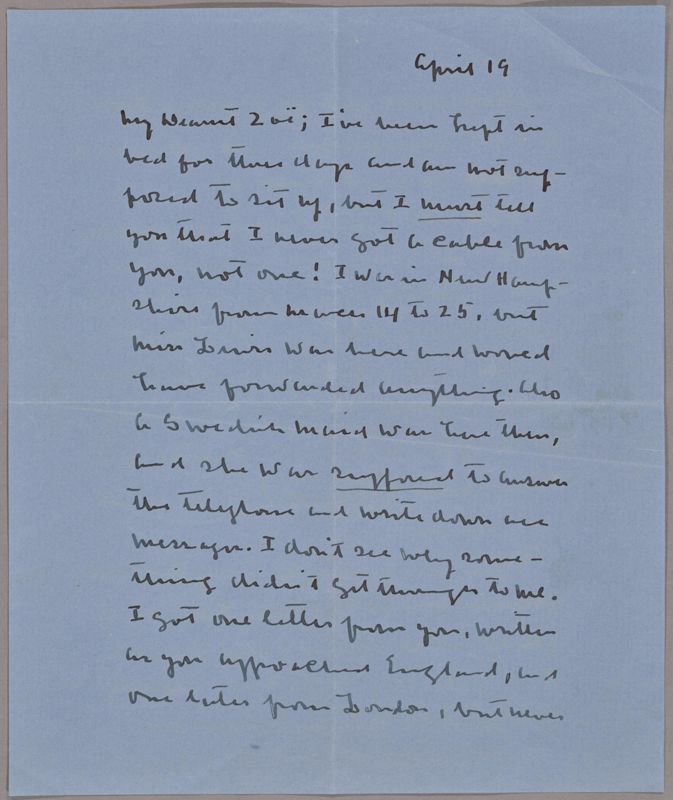 April 19
My Dearest Zoë; I've been kept in
bed for three days and am not sup-
posed to sit up, but I must tell
you that I never got a cable from
you, not one! I was in New Hamp-
shire from March 14 to 25, but
Miss Lewis was here and would
have forwarded anything. Also
a Swedish maid was here then,
and she was supposed to answer
the telephone and write down all
messages. I don't see why some-
thing didn't get through to me.
I got one letter from you, written
as you approached England, and
one later from London, but never